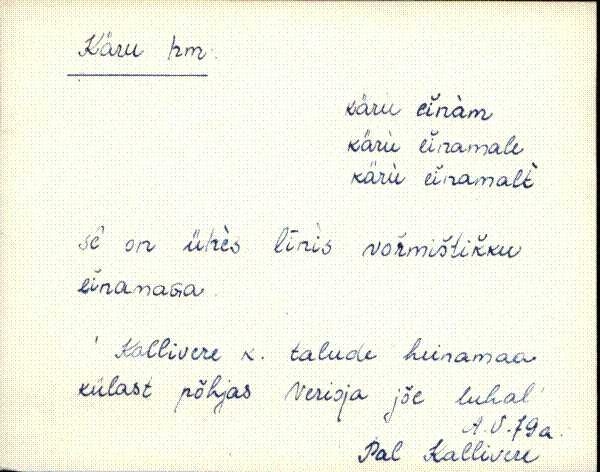 Käru hm.
kärù eĭnàm
kärù eĭnamale
kärù eĭnamalt̀
sē on ühès līnis voȓmištikku
eĭnamaga.
Kallivere k. talude heinamaa
külast põhjas Verioja jõe luhal
A.V.79a.
Pal Kallivere